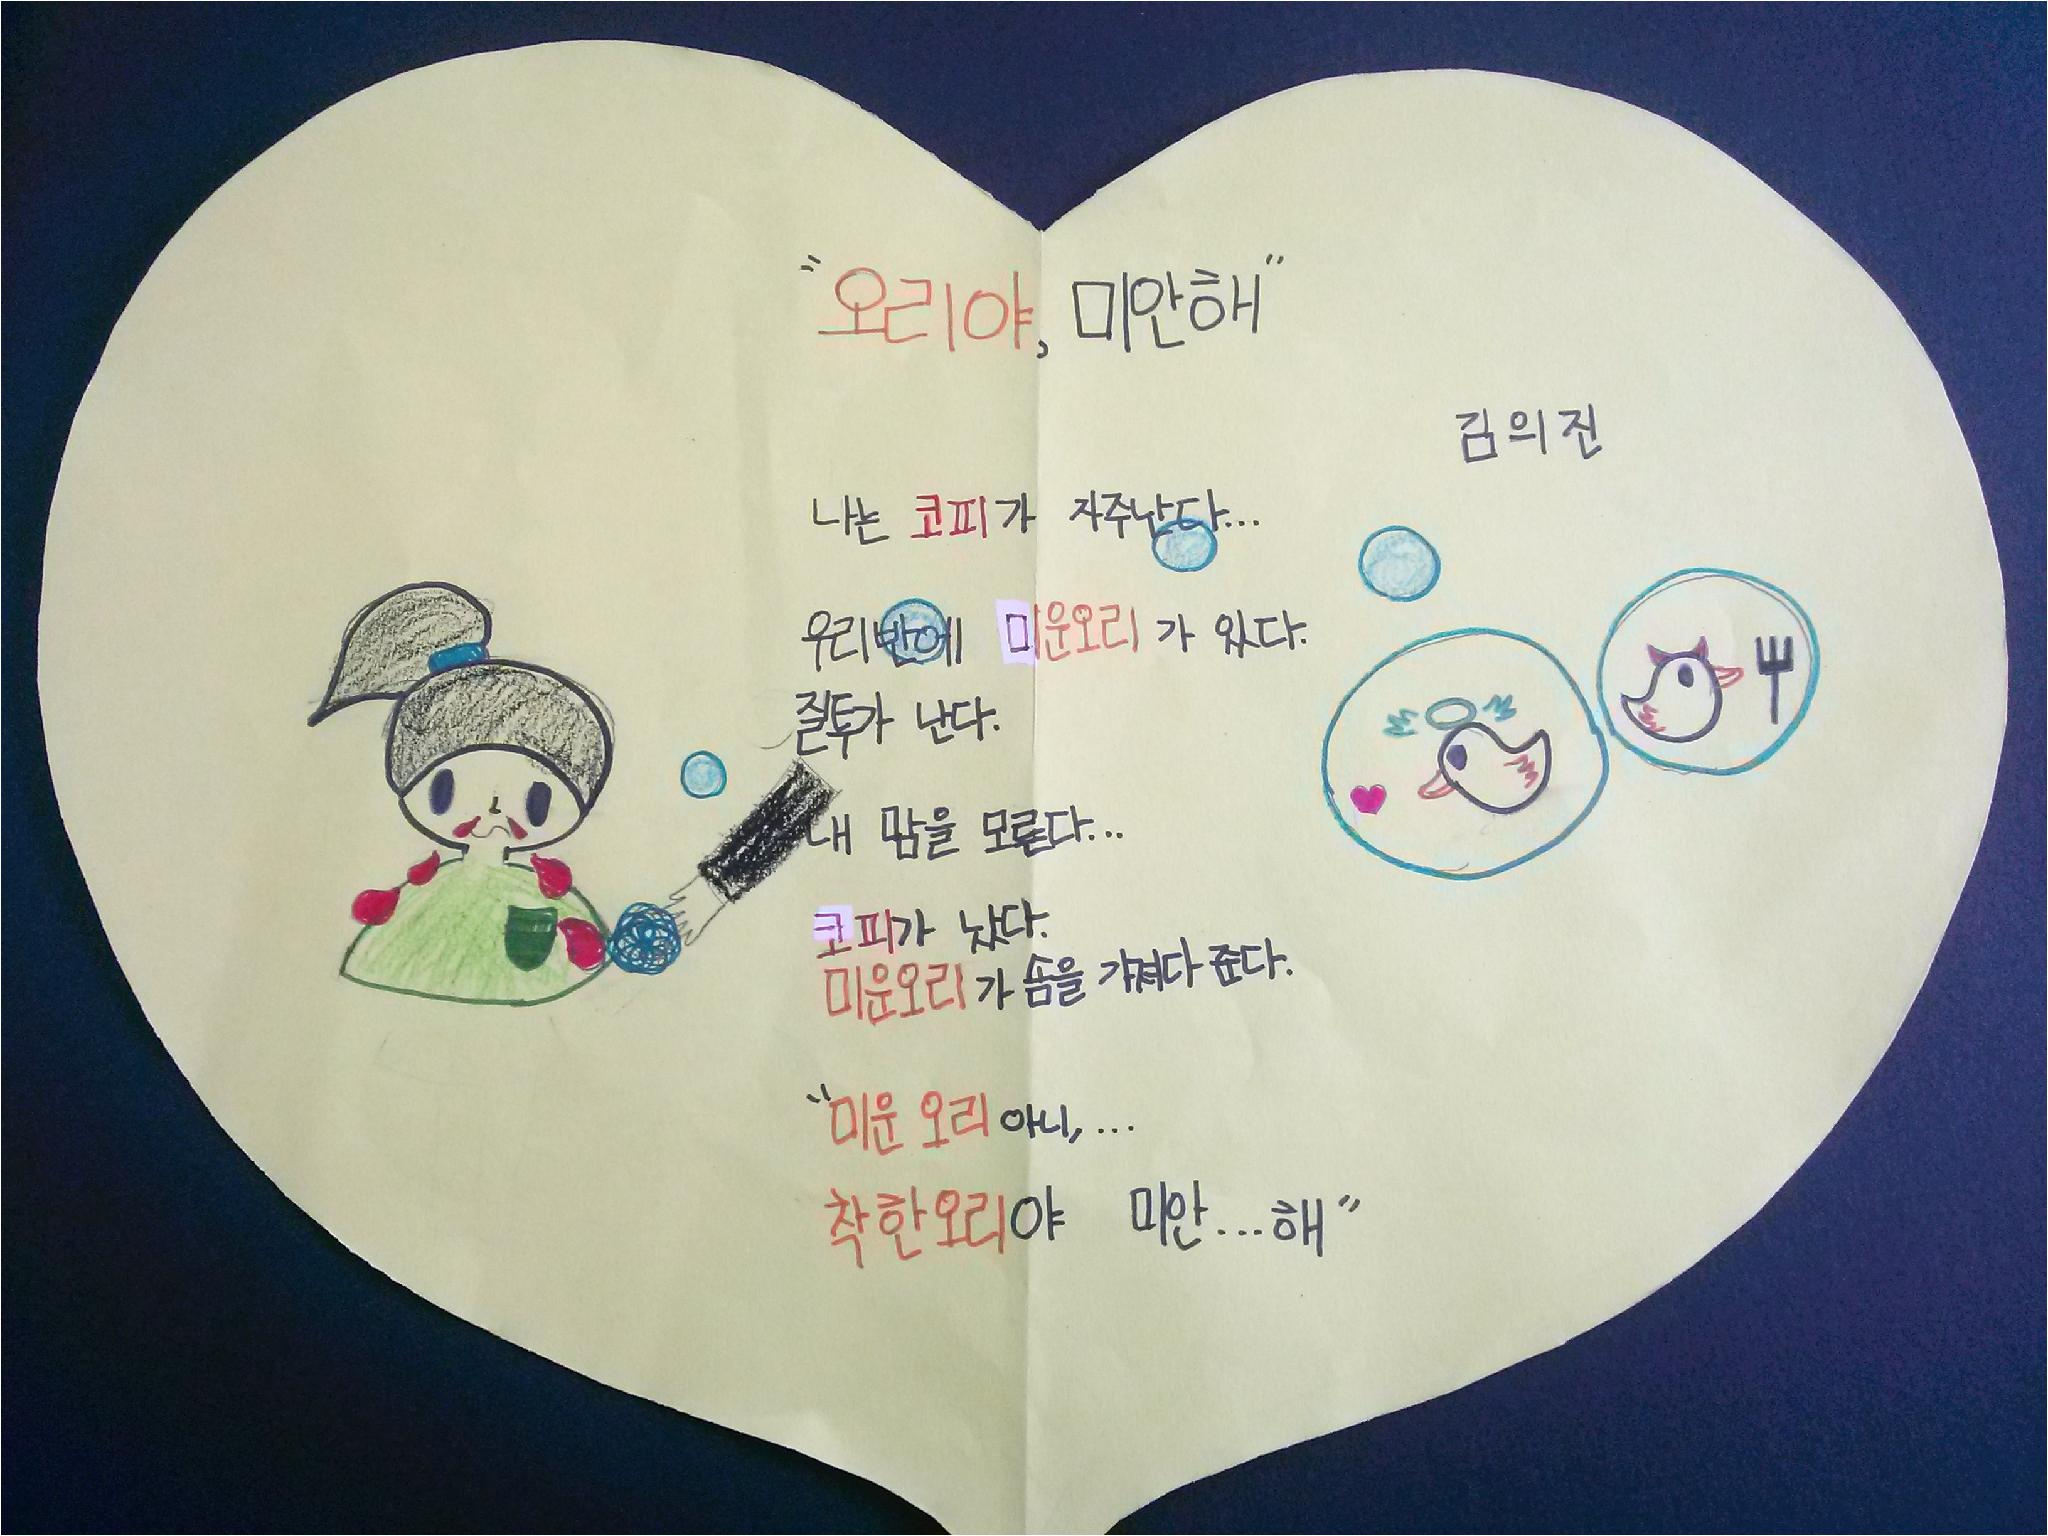 "오리야, 미안해"
김의진
나는 코피가 자주난다...
우리반에 미운오리가 있다.
질투가 난다.
내 맘을 모른다...
코피가 났다.
미운오리가 솜을 가져다 준다.
"미운 오리 아니,...
착한오리야 미안...해"